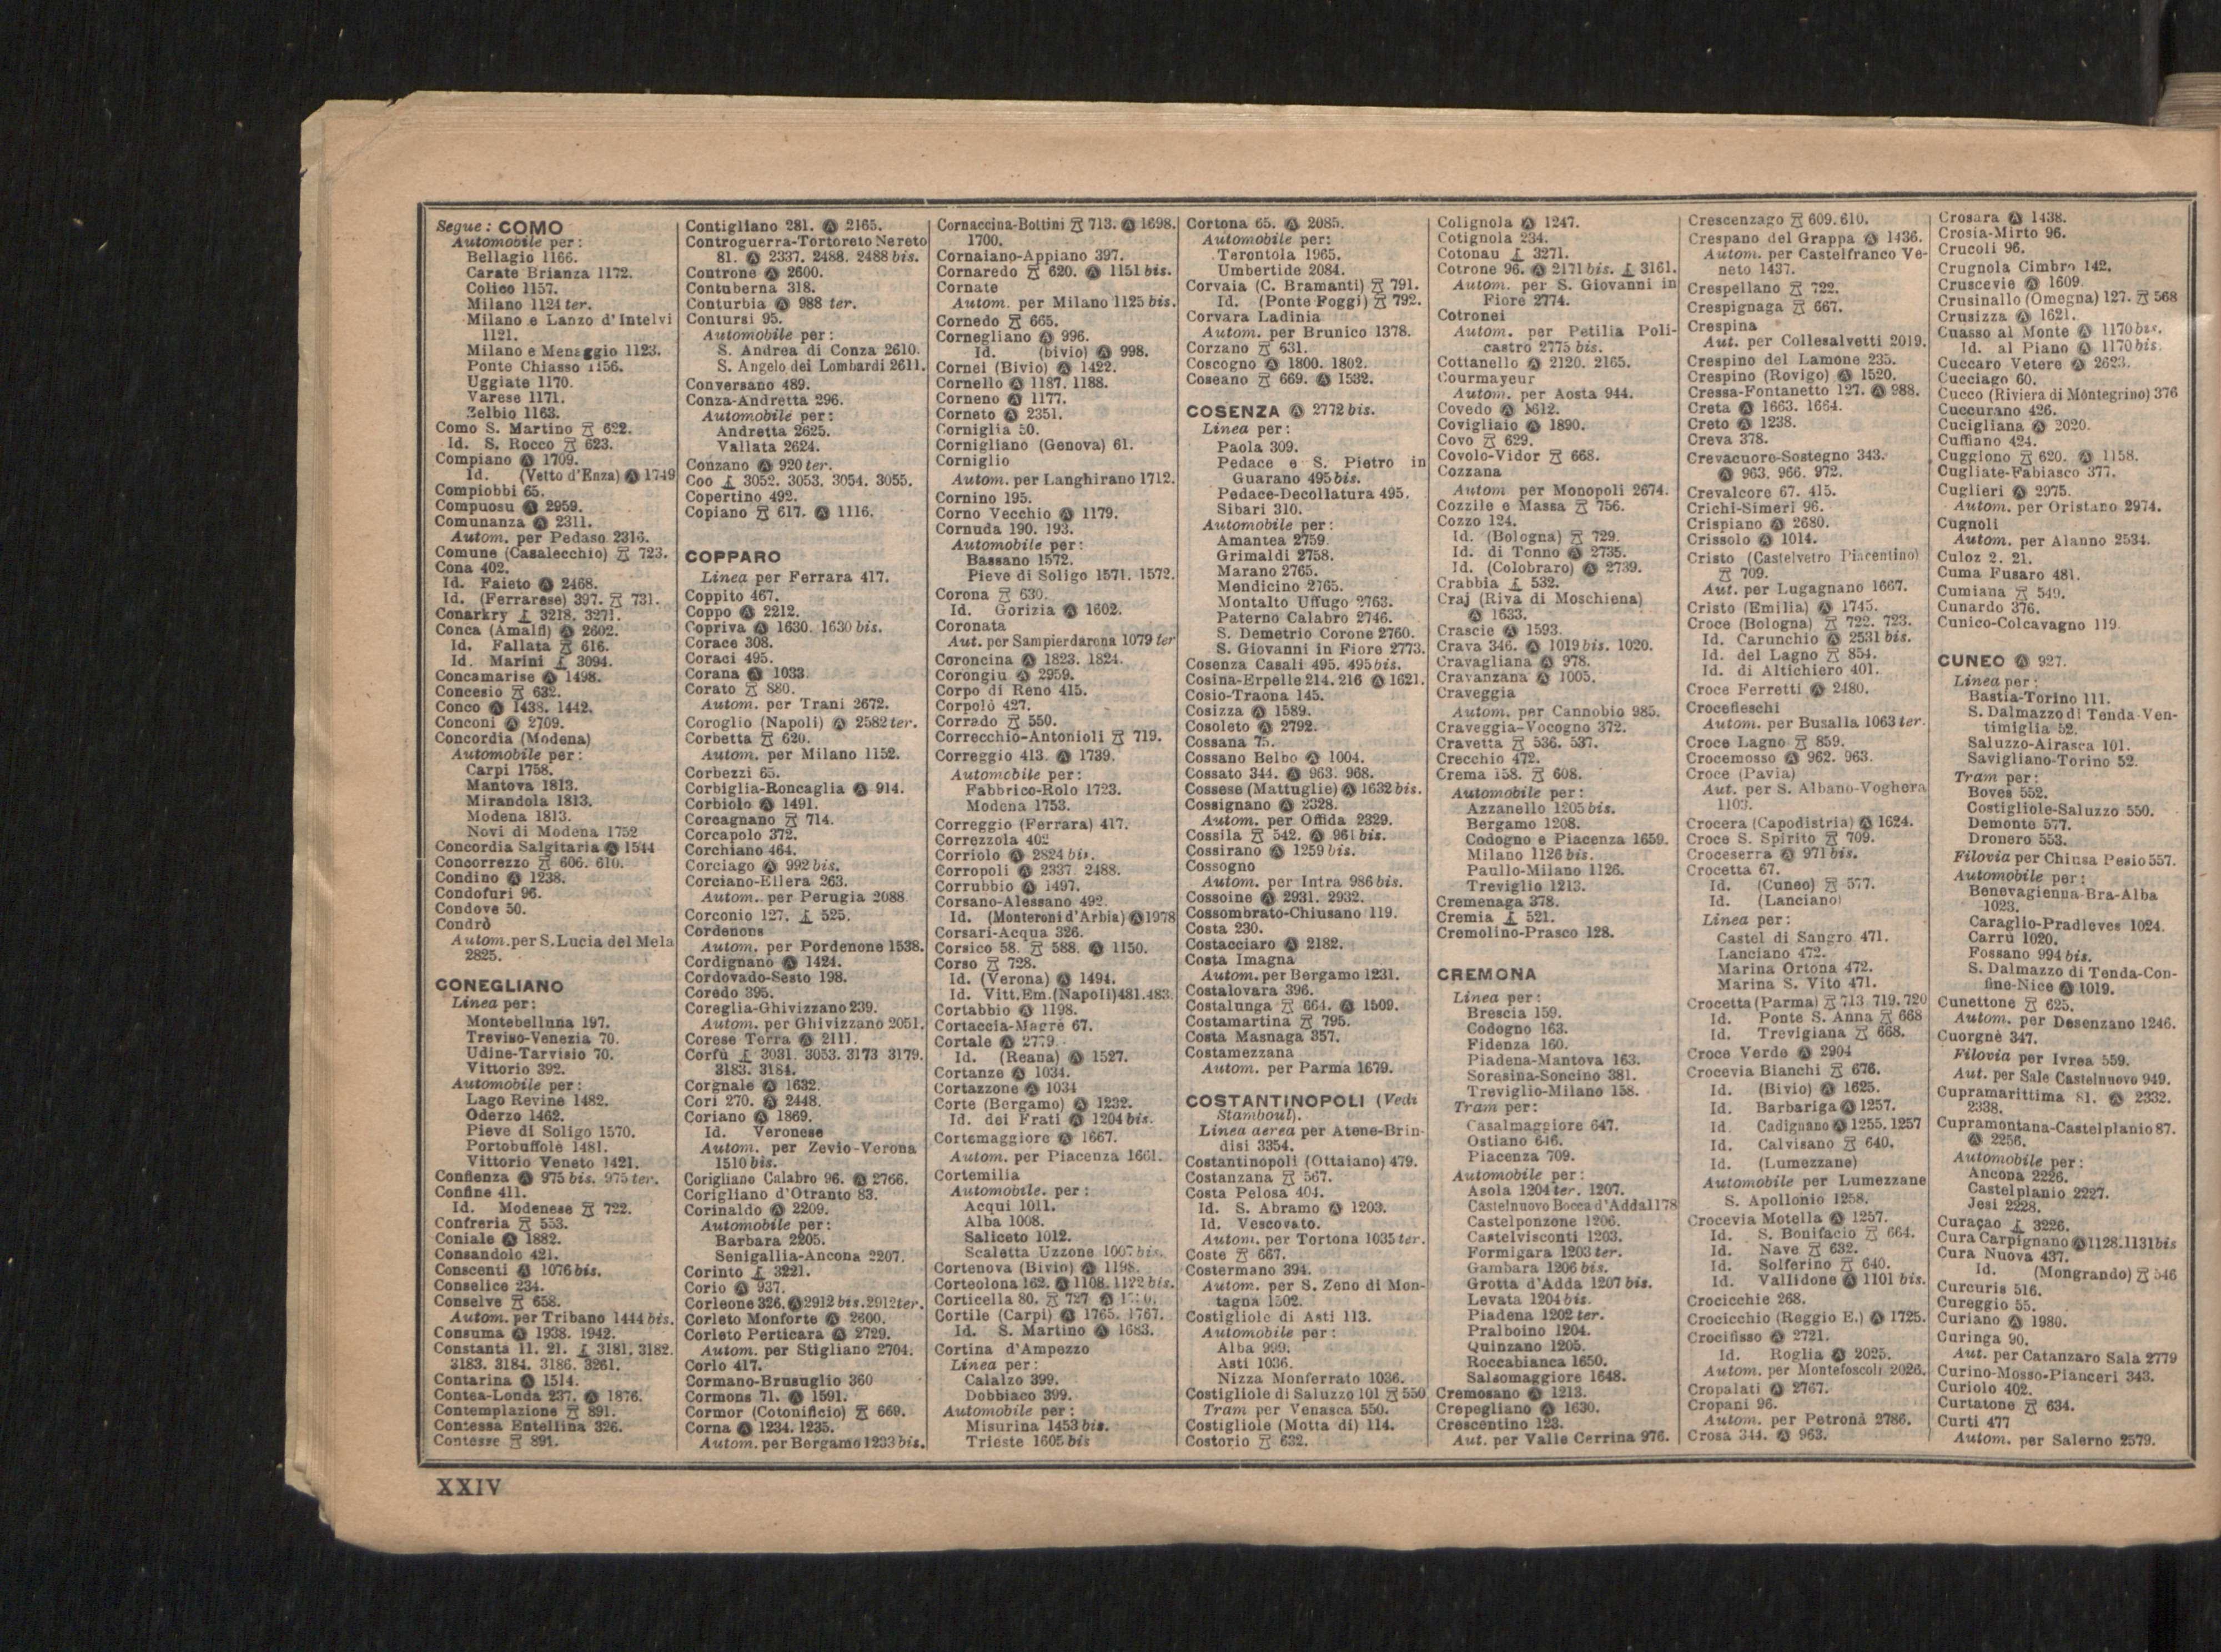 Segue : COMO
Automobile per :
Bellagio 1166.
Carate Brianza 1172.
Colico 1157.
Milano 1124 ter.
Milano e Lanzo d'Intelvi
1121.
Milano e Menaggio 1123.
Ponte Chiasso 1156.
Uggiate 1170.
Varese 1171.
Zelbio 1163.
Como S. Martino 622.
Id. S. Rocco 623.
Compiano Ⓐ 1709.
Id. (Vetto d'Enza) Ⓐ 1749
Compiobbi 65.
Compuosu Ⓐ 2959.
Comunanza Ⓐ 2311.
Autom. per Pedaso 2316.
Comune (Casalecchio) 723.
Cona 402.
Id. Faieto Ⓐ 2468.
Id. (Ferrarese) 397. 731.
Conarkry 3218. 3271.
Conca (Amalfi) Ⓐ 2602.
Id. Fallata 616.
Id. Marini 3094.
Concamarise Ⓐ 1498.
Concesio 632.
Conco Ⓐ 1438. 1442.
Conconi Ⓐ 2709.
Concordia (Modena)
Automobile per :
Carpi 1758.
Mantova 1813.
Mirandola 1813.
Modena 1813.
Novi di Modena 1752
Concordia Salgitaria Ⓐ 1544
Concorrezzo 606. 610.
Condino Ⓐ 1238.
Condofuri 96.
Condove 50.
Condrò
Autom. per S. Lucia del Mela
2825.
CONEGLIANO
Linea per :
Montebelluna 197.
Treviso-Venezia 70.
Udine-Tarvisio 70.
Vittorio 392.
Automobile per :
Lago Revine 1482.
Oderzo 1462.
Pieve di Soligo 1570.
Portobuffolè 1481.
Vittorio Veneto 1421.
Confienza Ⓐ 975 bis. 975 ter.
Confine 411.
Id. Modenese 722.
Confreria 553.
Coniale Ⓐ 1882.
Consandolo 421.
Conscenti Ⓐ 1076 bis.
Conselice 234.
Conselve 658.
Autom. per Tribano 1444 bis.
Consuma Ⓐ 1938. 1942.
Constanta 11. 21. 3181. 3182.
3183. 3184. 3186. 3261.
Contarina Ⓐ 1514.
Contea-Londa 237. Ⓐ 1876.
Contemplazione 891.
Contessa Entellina 326.
Contesse 891.
Contigliano 281. Ⓐ 2165.
Controguerra-Tortoreto Nereto
81. Ⓐ 2337. 2488. 2488 bis.
Controne Ⓐ 2600.
Contuberna 318.
Conturbia Ⓐ 988 ter.
Contursi 95.
Automobile per :
S. Andrea di Conza 2610.
S. Angelo dei Lombardi 2611.
Conversano 489.
Conza-Andretta 296.
Automobile per :
Andretta 2625.
Vallata 2624.
Conzano Ⓐ 920 ter.
Coo 3052. 3053. 3054. 3055.
Copertino 492.
Copiano 617. Ⓐ 1116.
COPPARO
Linea per Ferrara 417.
Coppito 467.
Coppo Ⓐ 2212.
Copriva Ⓐ 1630. 1630 bis.
Corace 308.
Coraci 495.
Corana Ⓐ 1033.
Corato 880.
Autom. per Trani 2672.
Coroglio (Napoli) Ⓐ 2582 ter.
Corbetta 620.
Autom. per Milano 1152.
Corbezzi 65.
Corbiglia-Roncaglia Ⓐ 914.
Corbiolo Ⓐ 1491.
Corcagnano 714.
Corcapolo 372.
Corchiano 464.
Corciago Ⓐ 992 bis.
Corciano-Ellera 263.
Autom. per Perugia 2088
Corconio 127. 525.
Cordenons
Autom. per Pordenone 1538.
Cordignano Ⓐ 1424.
Cordovado-Sesto 198.
Coredo 395.
Coreglia-Ghivizzano 239.
Autom. per Ghivizzano 2051.
Corese Terra Ⓐ 2111.
Corfù 3031. 3053. 3173 3179.
3183. 3184.
Corgnale Ⓐ 1632.
Cori 270. Ⓐ 2448.
Coriano Ⓐ 1869.
Id. Veronese
Autom. per Zevio-Verona
1510 bis.
Corigliano Calabro 96. Ⓐ 2766.
Corigliano d'Otranto 83.
Corinaldo Ⓐ 2209.
Automobile per :
Barbara 2205.
Senigallia-Ancona 2207.
Corinto 3221.
Corio Ⓐ 937.
Corleone 326. Ⓐ 2912 bis. 2912 ter.
Corleto Monforte Ⓐ 2600.
Corleto Perticara Ⓐ 2729.
Autom. per Stigliano 2704.
Corlo 417.
Cormano-Brusuglio 360
Cormons 71. Ⓐ 1591.
Cormor (Cotonificio) 669.
Corna Ⓐ 1234. 1235.
Autom. per Bergamo 1233 bis.
Cornaccina-Bottini 713. Ⓐ 1698.
1700.
Cornaiano-Appiano 397.
Cornaredo 620. Ⓐ 1151 bis.
Cornate
Autom. per Milano 1125 bis.
Cornedo 665.
Cornegliano Ⓐ 996.
Id. (bivio) Ⓐ 998.
Cornei (Bivio) Ⓐ 1422.
Cornello Ⓐ 1187. 1188.
Corneno Ⓐ 1177.
Corneto Ⓐ 2351.
Corniglia 50.
Cornigliano (Genova) 61.
Corniglio
Autom. per Langhirano 1712.
Cornino 195.
Corno Vecchio Ⓐ 1179.
Cornuda 190. 193.
Automobile per :
Bassano 1572.
Pieve di Soligo 1571. 1572.
Corona 630.
Id. Gorizia Ⓐ 1602.
Coronata
Aut. per Sampierdarena 1079 ter
Coroncina Ⓐ 1823. 1824.
Corongiu Ⓐ 2959.
Corpo di Reno 415.
Corpolò 427.
Corrado 550.
Correcchio-Antonioli 719.
Correggio 413. Ⓐ 1739.
Automobile per :
Fabbrico-Rolo 1723.
Modena 1753.
Correggio (Ferrara) 417.
Correzzola 402
Corriolo Ⓐ 2824 bis.
Corropoli Ⓐ 2337 2488.
Corrubbio Ⓐ 1497.
Corsano-Alessano 492.
Id. (Monteroni d'Arbia) Ⓐ 1978
Corsari-Acqua 326.
Corsico 58. 588. Ⓐ 1150.
Corso 728.
Id. (Verona) Ⓐ 1494.
Id. Vitt. Em. (Napoli) 481. 483.
Cortabbio Ⓐ 1198.
Cortaccia-Magrè 67.
Cortale Ⓐ 2779.
Id. (Reana) Ⓐ 1527.
Cortanze Ⓐ 1034.
Cortazzone Ⓐ 1034
Corte (Bergamo) Ⓐ 1232.
Id. dei Frati Ⓐ 1204 bis.
Cortemaggiore Ⓐ 1667.
Autom. per Piacenza 1661.
Cortemilia
Automobile. per :
Acqui 1011.
Alba 1008.
Saliceto 1012.
Scaletta Uzzone 1007 bis.
Cortenova (Bivio) Ⓐ 1198.
Corteolona 162. Ⓐ 1108. 1122 bis.
Corticella 80. 727 Ⓐ
Cortile (Carpi) Ⓐ 1765. 1767.
Id. S. Martino Ⓐ 1683.
Cortina d'Ampezzo
Linea per :
Calalzo 399.
Dobbiaco 399.
Automobile per :
Misurina 1453 bis.
Trieste 1605 bis
Cortona 65. Ⓐ 2085.
Automobile per:
Terontola 1965.
Umbertide 2084.
Corvaia (C. Bramanti) 791.
Id. (Ponte Foggi) 792.
Corvara Ladinia
Autom. per Brunico 1378.
Corzano 631.
Coscogno Ⓐ 1800. 1802.
Coseano 669. Ⓐ 1532.
COSENZA Ⓐ 2772 bis.
Linea per :
Paola 309.
Pedace e S. Pietro in
Guarano 495 bis.
Pedace-Decollatura 495.
Sibari 310.
Automobile per :
Amantea 2759.
Grimaldi 2758.
Marano 2765.
Mendicino 2765.
Montalto Uffugo 2763.
Paterno Calabro 2746.
S. Demetrio Corone 2760.
S. Giovanni in Fiore 2773.
Cosenza Casali 495. 495 bis.
Cosina-Erpelle 214. 216 Ⓐ 1621.
Cosio-Traona 145.
Cosizza Ⓐ 1589.
Cosoleto Ⓐ 2792.
Cossana 75.
Cossano Belbo Ⓐ 1004.
Cossato 344. Ⓐ 963. 968.
Cossese (Mattuglie) Ⓐ 1632 bis.
Cossignano Ⓐ 2328.
Autom. per Offida 2329.
Cossila 542. Ⓐ 961 bis.
Cossirano Ⓐ 1259 bis.
Cossogno
Autom. per Intra 986 bis.
Cossoine Ⓐ 2931. 2932.
Cossombrato-Chiusano 119.
Costa 230.
Costacciaro Ⓐ 2182.
Costa Imagna
Autom. per Bergamo 1231.
Costalovara 396.
Costalunga 664. Ⓐ 1509.
Costamartina 795.
Costa Masnaga 357.
Costamezzana
Autom. per Parma 1679.
COSTANTINOPOLI (Vedi
Stamboul).
Linea aerea per Atene-Brin-
disi 3354.
Costantinopoli (Ottaiano) 479.
Costanzana 567.
Costa Pelosa 404.
Id. S. Abramo Ⓐ 1203.
Id. Vescovato.
Autom. per Tortona 1035 ter.
Coste 667.
Costermano 394.
Autom. per S. Zeno di Mon-
tagna 1502.
Costigliole di Asti 113.
Automobile per :
Alba 999.
Asti 1036.
Nizza Monferrato 1036.
Costigliole di Saluzzo 101 550
Tram per Venasca 550.
Costigliole (Motta di) 114.
Costorio 632.
Colignola Ⓐ 1247.
Cotignola 234.
Cotonau 3271.
Cotrone 96. Ⓐ 2171 bis. 3161.
Autom. per S. Giovanni in
Fiore 2774.
Cotronei
Autom. per Petilia Poli-
castro 2775 bis.
Cottanello Ⓐ 2120. 2165.
Courmayeur
Autom. per Aosta 944.
Covedo Ⓐ 1612.
Covigliaio Ⓐ 1890.
Covo 629.
Covolo-Vidor 668.
Cozzana
Autom per Monopoli 2674.
Cozzile e Massa 756.
Cozzo 124.
Id. (Bologna) 729.
Id. di Tonno Ⓐ 2735.
Id. (Colobraro) Ⓐ 2739.
Crabbia 532.
Craj (Riva di Moschiena)
Ⓐ 1633.
Crascie Ⓐ 1593.
Crava 346. Ⓐ 1019 bis. 1020.
Cravagliana Ⓐ 978.
Cravanzana Ⓐ 1005.
Craveggia
Autom. per Cannobio 985.
Craveggia-Vocogno 372.
Cravetta 536. 537.
Crecchio 472.
Crema 158. 608.
Automobile per :
Azzanello 1205 bis.
Bergamo 1208.
Codogno e Piacenza 1659.
Milano 1126 bis.
Paullo-Milano 1126.
Treviglio 1213.
Cremenaga 378.
Cremia 521.
Cremolino-Prasco 128.
CREMONA
Linea per :
Brescia 159.
Codogno 163.
Fidenza 160.
Piadena-Mantova 163.
Soresina-Soncino 381.
Treviglio-Milano 158.
Tram per :
Casalmaggiore 647.
Ostiano 646.
Piacenza 709.
Automobile per :
Asola 1204 ter. 1207.
Castelnuovo Bocca d'Adda 1178
Castelponzone 1206.
Castelvisconti 1203.
Formigara 1203 ter.
Gambara 1206 bis.
Grotta d'Adda 1207 bis.
Levata 1204 bis.
Piadena 1202 ter.
Pralboino 1204.
Quinzano 1205.
Roccabianca 1650.
Salsomaggiore 1648.
Cremosano Ⓐ 1213.
Crepegliano Ⓐ 1630.
Crescentino 123.
Aut. per Valle Cerrina 976.
Crescenzago 609. 610.
Crespano del Grappa Ⓐ 1436.
Autom. per Castelfranco Ve-
neto 1437.
Crespellano 722.
Crespignaga 667.
Crespina
Aut. per Collesalvetti 2019.
Crespino del Lamone 235.
Crespino (Rovigo) Ⓐ 1520.
Cressa-Fontanetto 127. Ⓐ 988.
Creta Ⓐ 1663. 1664.
Creto Ⓐ 1238.
Creva 378.
Crevacuore-Sostegno 343.
Ⓐ 963. 966. 972.
Crevalcore 67. 415.
Crichi-Simeri 96.
Crispiano Ⓐ 2680.
Crissolo Ⓐ 1014.
Cristo (Castelvetro Piacentino)
709.
Aut. per Lugagnano 1667.
Cristo (Emilia) Ⓐ 1745.
Croce (Bologna) 722. 723.
Id. Carunchio Ⓐ 2531 bis.
Id. del Lagno 854.
Id. di Altichiero 401.
Croce Ferretti Ⓐ 2480.
Crocefieschi
Autom. per Busalla 1063 ter.
Croce Lagno 859.
Crocemosso Ⓐ 962. 963.
Croce (Pavia)
Aut. per S. Albano-Voghera
1103.
Crocera (Capodistria) Ⓐ 1624.
Croce S. Spirito 709.
Croceserra Ⓐ 971 bis.
Crocetta 67.
Id. (Cuneo) 577.
Id. (Lanciano)
Linea per :
Castel di Sangro 471.
Lanciano 472.
Marina Ortona 472.
Marina S. Vito 471.
Crocetta (Parma) 713. 719. 720
Id. Ponte S. Anna 668
Id. Trevigiana 668.
Croce Verde Ⓐ 2904
Crocevia Bianchi 676.
Id. (Bivio) Ⓐ 1625.
Id. Barbariga Ⓐ 1257.
Id. Cadignano Ⓐ 1255. 1257
Id. Calvisano 640.
Id. (Lumezzane)
Automobile per Lumezzane
S. Apollonio 1258.
Crocevia Motella Ⓐ 1257.
Id. S. Bonifacio 664.
Id. Nave 632.
Id. Solferino 640.
Id. Vallidone Ⓐ 1101 bis.
Crocicchie 268.
Crocicchio (Reggio E.) Ⓐ 1725.
Crocifisso Ⓐ 2721.
Id. Roglia Ⓐ 2025.
Autom. per Montefoscoli 2026.
Cropalati Ⓐ 2767.
Cropani 96.
Autom. per Petronà 2786.
Crosa 344. Ⓐ 963.
Crosara Ⓐ 1438.
Crosia-Mirto 96.
Crucoli 96.
Crugnola Cimbro 142.
Cruscevie Ⓐ 1609.
Crusinallo (Omegna) 127. 568
Crusizza Ⓐ 1621.
Cuasso al Monte Ⓐ 1170 bis.
Id. al Piano Ⓐ 1170 bis.
Cuccaro Vetere Ⓐ 2623.
Cucciago 60.
Cucco (Riviera di Montegrino) 376
Cuccurano 426.
Cucigliana Ⓐ 2020.
Cuffiano 424.
Cuggiono 620. Ⓐ 1158.
Cugliate-Fabiasco 377.
Cuglieri Ⓐ 2975.
Autom. per Oristano 2974.
Cugnoli
Autom. per Alanno 2534.
Culoz 2. 21.
Cuma Fusaro 481.
Cumiana 549.
Cunardo 376.
Cunico-Colcavagno 119.
CUNEO Ⓐ 927.
Linea per :
Bastia-Torino 111.
S. Dalmazzo di Tenda-Ven-
timiglia 52.
Saluzzo-Airasca 101.
Savigliano-Torino 52.
Tram per :
Boves 552.
Costigliole-Saluzzo 550.
Demonte 577.
Dronero 553.
Filovia per Chiusa Pesio 557.
Automobile per :
Benevagienna-Bra-Alba
1023.
Caraglio-Pradleves 1024.
Carrù 1020.
Fossano 994 bis.
S. Dalmazzo di Tenda-Con-
fine-Nice Ⓐ 1019.
Cunettone 625.
Autom. per Desenzano 1246.
Cuorgnè 347.
Filovia per Ivrea 559.
Aut. per Sale Castelnuovo 949.
Cupramarittima 81. Ⓐ 2332.
2338.
Cupramontana-Castelplanio 87.
Ⓐ 2256.
Automobile per :
Ancona 2226.
Castelplanio 2227.
Jesi 2228.
Curaçao 3226.
Cura Carpignano Ⓐ 1128. 1131 bis
Cura Nuova 437.
Id. (Mongrando) 546
Curcuris 516.
Cureggio 55.
Curiano Ⓐ 1980.
Curinga 90.
Aut. per Catanzaro Sala 2779
Curino-Mosso-Pianceri 343.
Curiolo 402.
Curtatone 634.
Curti 477
Autom. per Salerno 2579.
XXIV